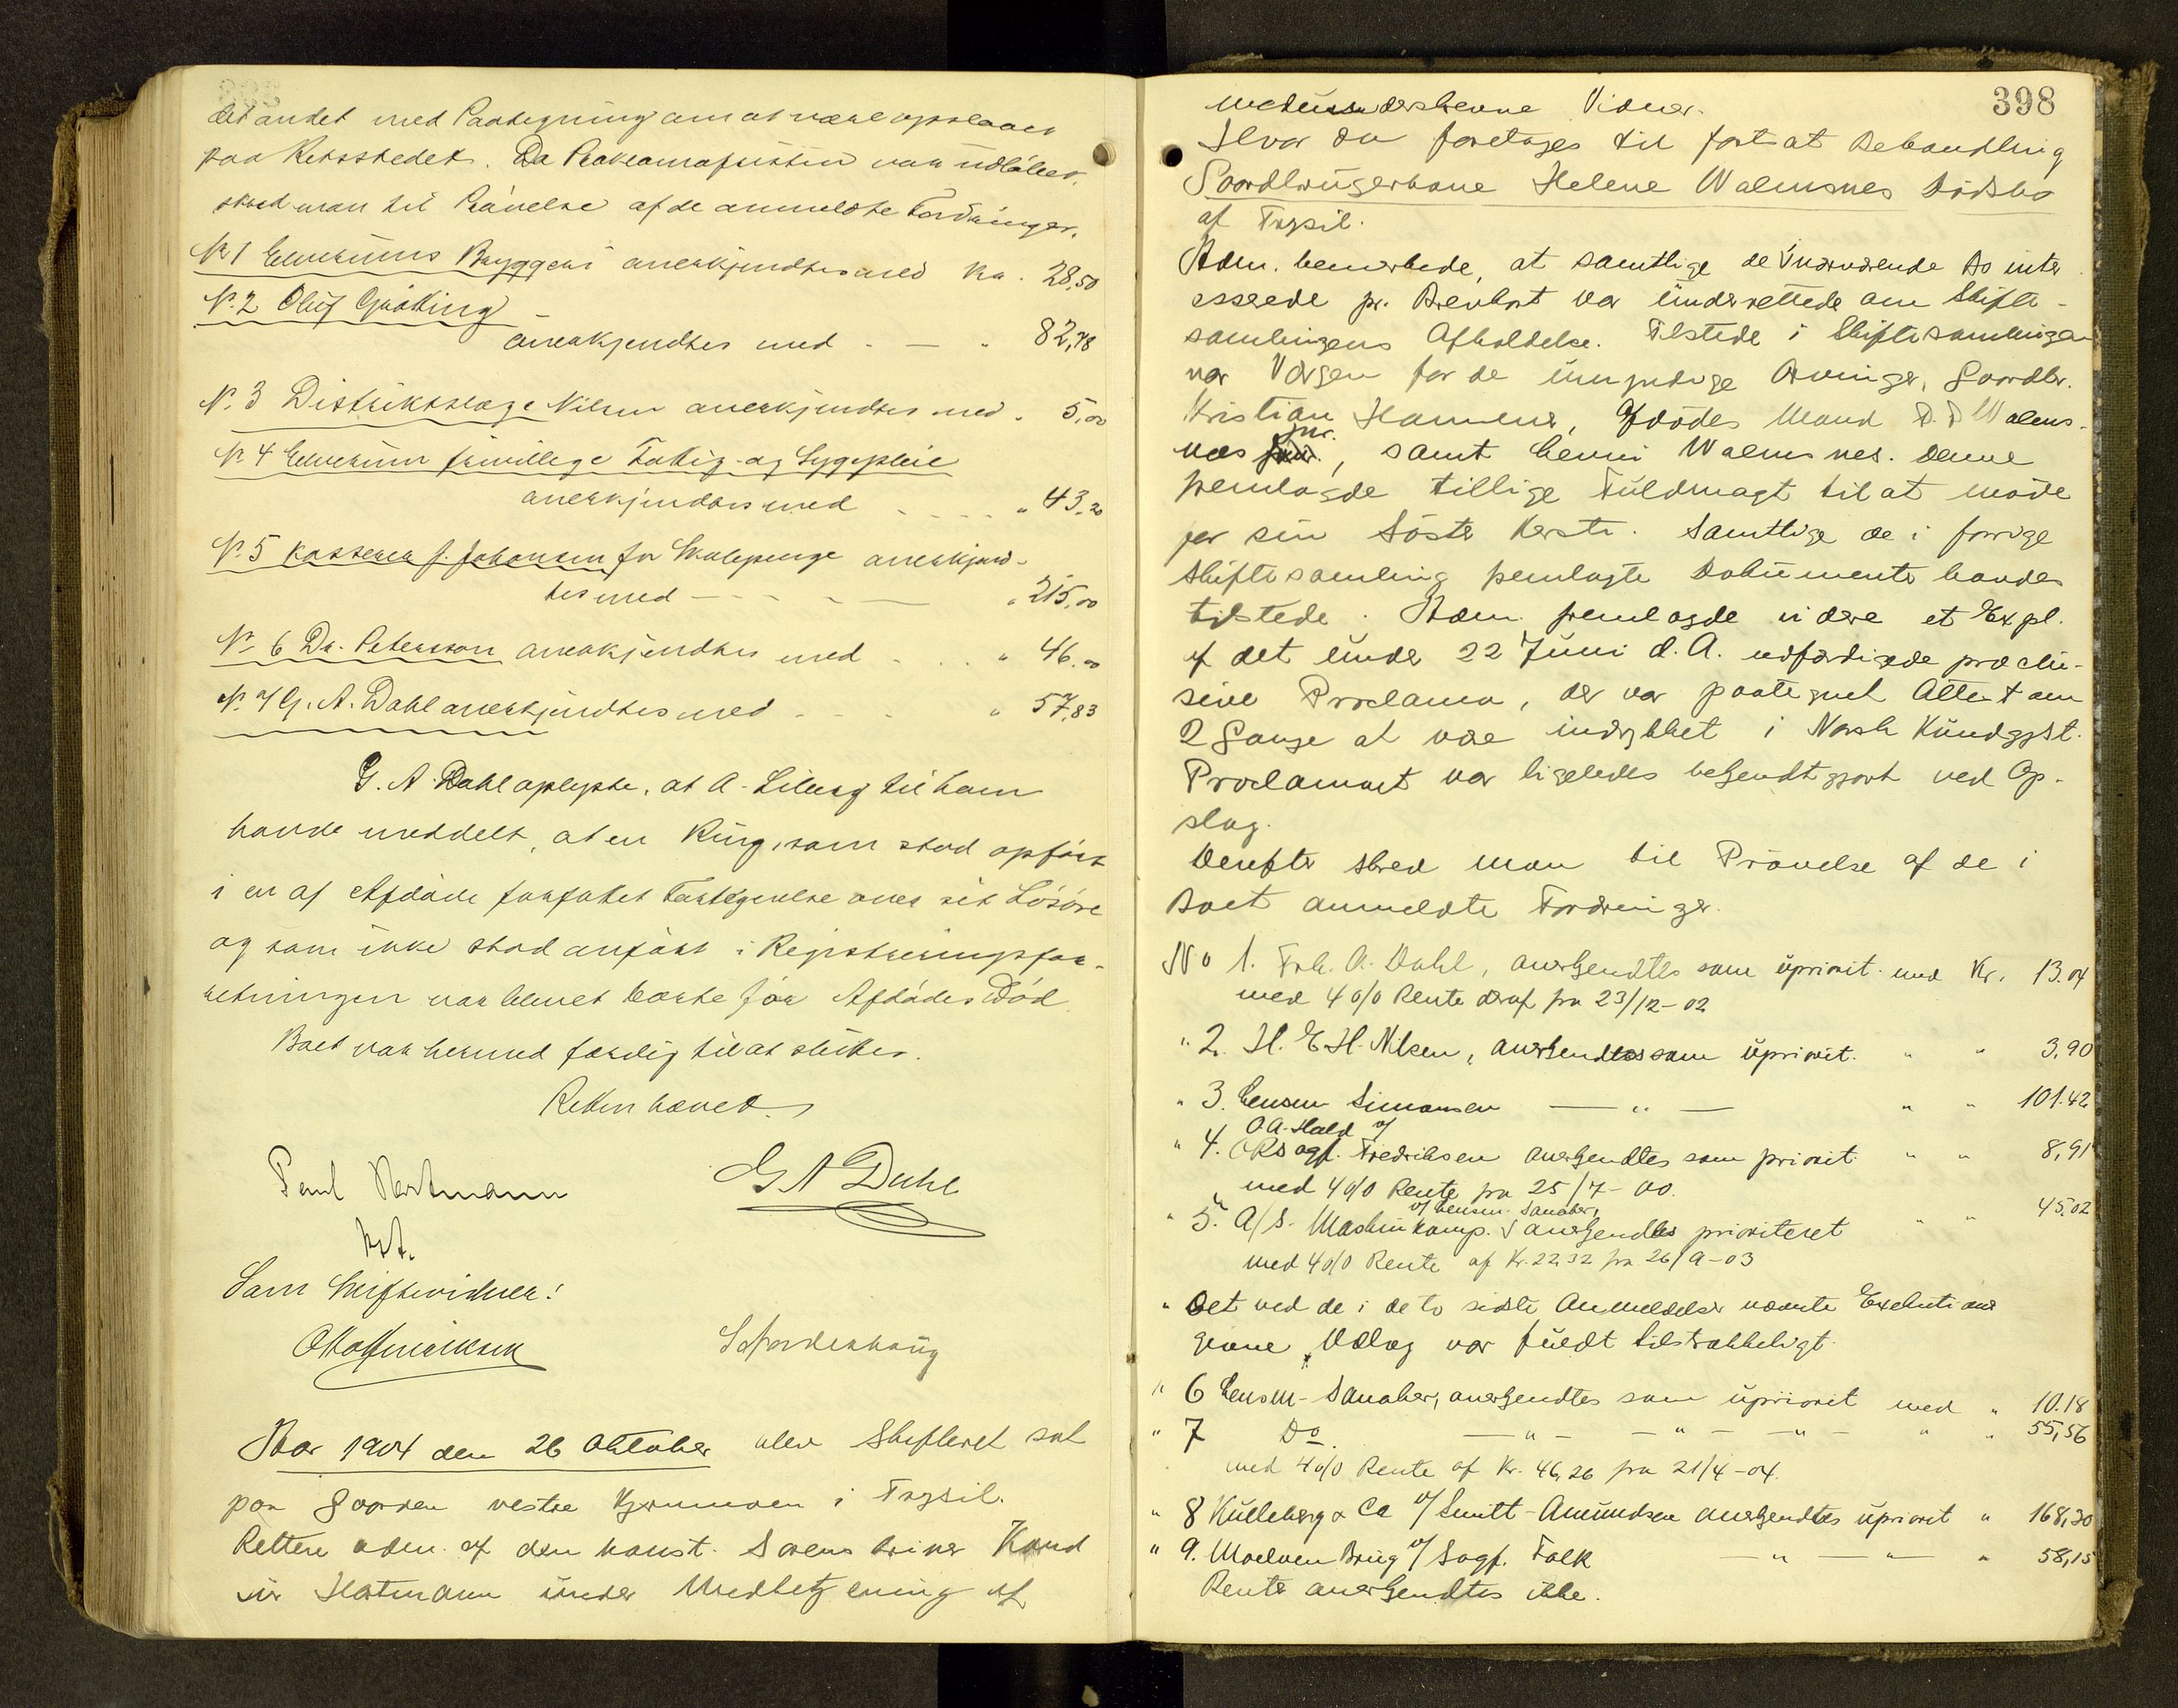 det andet med Paategning om at være opslaaet
paa Retsstedet. Da Proklamafristen var udløbet,
skred man til Prøvelse af de anmeldte Fordringer.
No 1 Elverums Bryggeri anerkjendtes med Kr. 28,50
No. 2 Oluf Grøtting
anerkjendtes med - — " 82,78
No. 3 Distriktslæge Nilsen anerkjendtes med . 5,00
No. 4 Elverums frivillige Fattig- og Sygepleie
anerkjendtes med - - - - " 43,20
No. 5 Kasserer J. Johansen for Skolepenge anerkjend-
tes med - - - - — " 215,00
No. 6 Dr. Petersson anerkjendtes med - . . " 46.00
No. 7 G. A. Dahl anerkjendtes med - - - " 57,83
G. A. Dahl oplyste, at A. Lilleng til ham
havde meddelt, at en Ring, som stod opført
i en af Afdøde forfattet Fortegnelse over sit Løsøre
og som ikke stod anført i Registreringsfor-
retningen var blevet borte før Afdødes Død.
Boet var hermed færdig til at sluttes.
Retten hævet.
Paul Hartmann
kst.
G A Dahl
Som Skiftevidner:
Otto Henriksen
S Nordenhaug
Aar 1904 den 26 Oktober blev Skifteret sat
paa Gaarden vestre Kjernmoen i Trysil.
Retten adm. af den konst. Sorenskriver Kand
jur Hartmann under Medbetjening af
398
medunderskrevne Vidner.
Hvor da foretages til fortsat Behandling
Gaardbrugerkone Helene Walmsnes Dødsbo
af Trysil.
Adm. bemærkede, at samtlige de i nærværende Bo inter
esserede pr. Brevkort var underrettede om Skifte-
samlingens Afholdelse. Tilstede i Skiftesamlingen
var Værgen for de umyndige Arvinger, Gaardbr.
Kristian Hammer, Afdødes Mand P. P. Walms-
næs jnr., samt Henri Walmsnes. Denne
fremlagde tillige Fuldmagt til at møde
for sin Søster Kersti. Samtlige de i forrige
Skiftesamling fremlagte Dokumenter havdes
tilstede. Adm. fremlagde videre et Expl.
af det under 22 Juni d. A. udfærdigede præclu-
sive Proclama, der var paategnet Attest om
2 Gange at være indrykket i Norsk Kundgjst.
Proclamaet var ligeledes bekjendtgjort ved Op-
slag.
Derefter skred man til Prøvelse af de i
Boet anmeldte Fordringer.
No 1. Frk. A. Dahl, anerkjendtes som uprivit. med Kr. 13.04
med 4 o/o Rente deraf fra 23/12-02
" 2. H. E. H. Nilsen, anerkjendtes som uprivit. " " 3,90
" 3. Lensm Simonsen — " — " " 101.42
O A. Hald v/
" 4. ORsagf. Fredriksen anerkjendtes som privit. " " 8,91
med 4 o/o Rente fra 25/7-00.
v/ Lensm. Sanaker,
" 5. A/S. Maskinkomp. anerkjendtes prioriteret " " 45.02
med 4 o/o Rente af Kr. 22,32 fra 26/9-03
" Det ved de i de to sidste Anmeldelser nævnte Exekutioner
givne Udlæg var fuldt tilstrækkeligt.
" 6 Lensm. Sanaker, anerkjendtes som upriorit med " 10.18
" 7 Do. — " — — " — — " — " " 55,56
med 4 o/o Rente af Kr. 46,26 fra 21/4-04.
" 8 Kulleberg & Co v/ Smitt-Amundsen anerkjendtes upriorit " 168,30
" 9. Moelven Brug v/ Sagf. Falk — " — " — " 58,15
Rente anerkjendtes ikke.